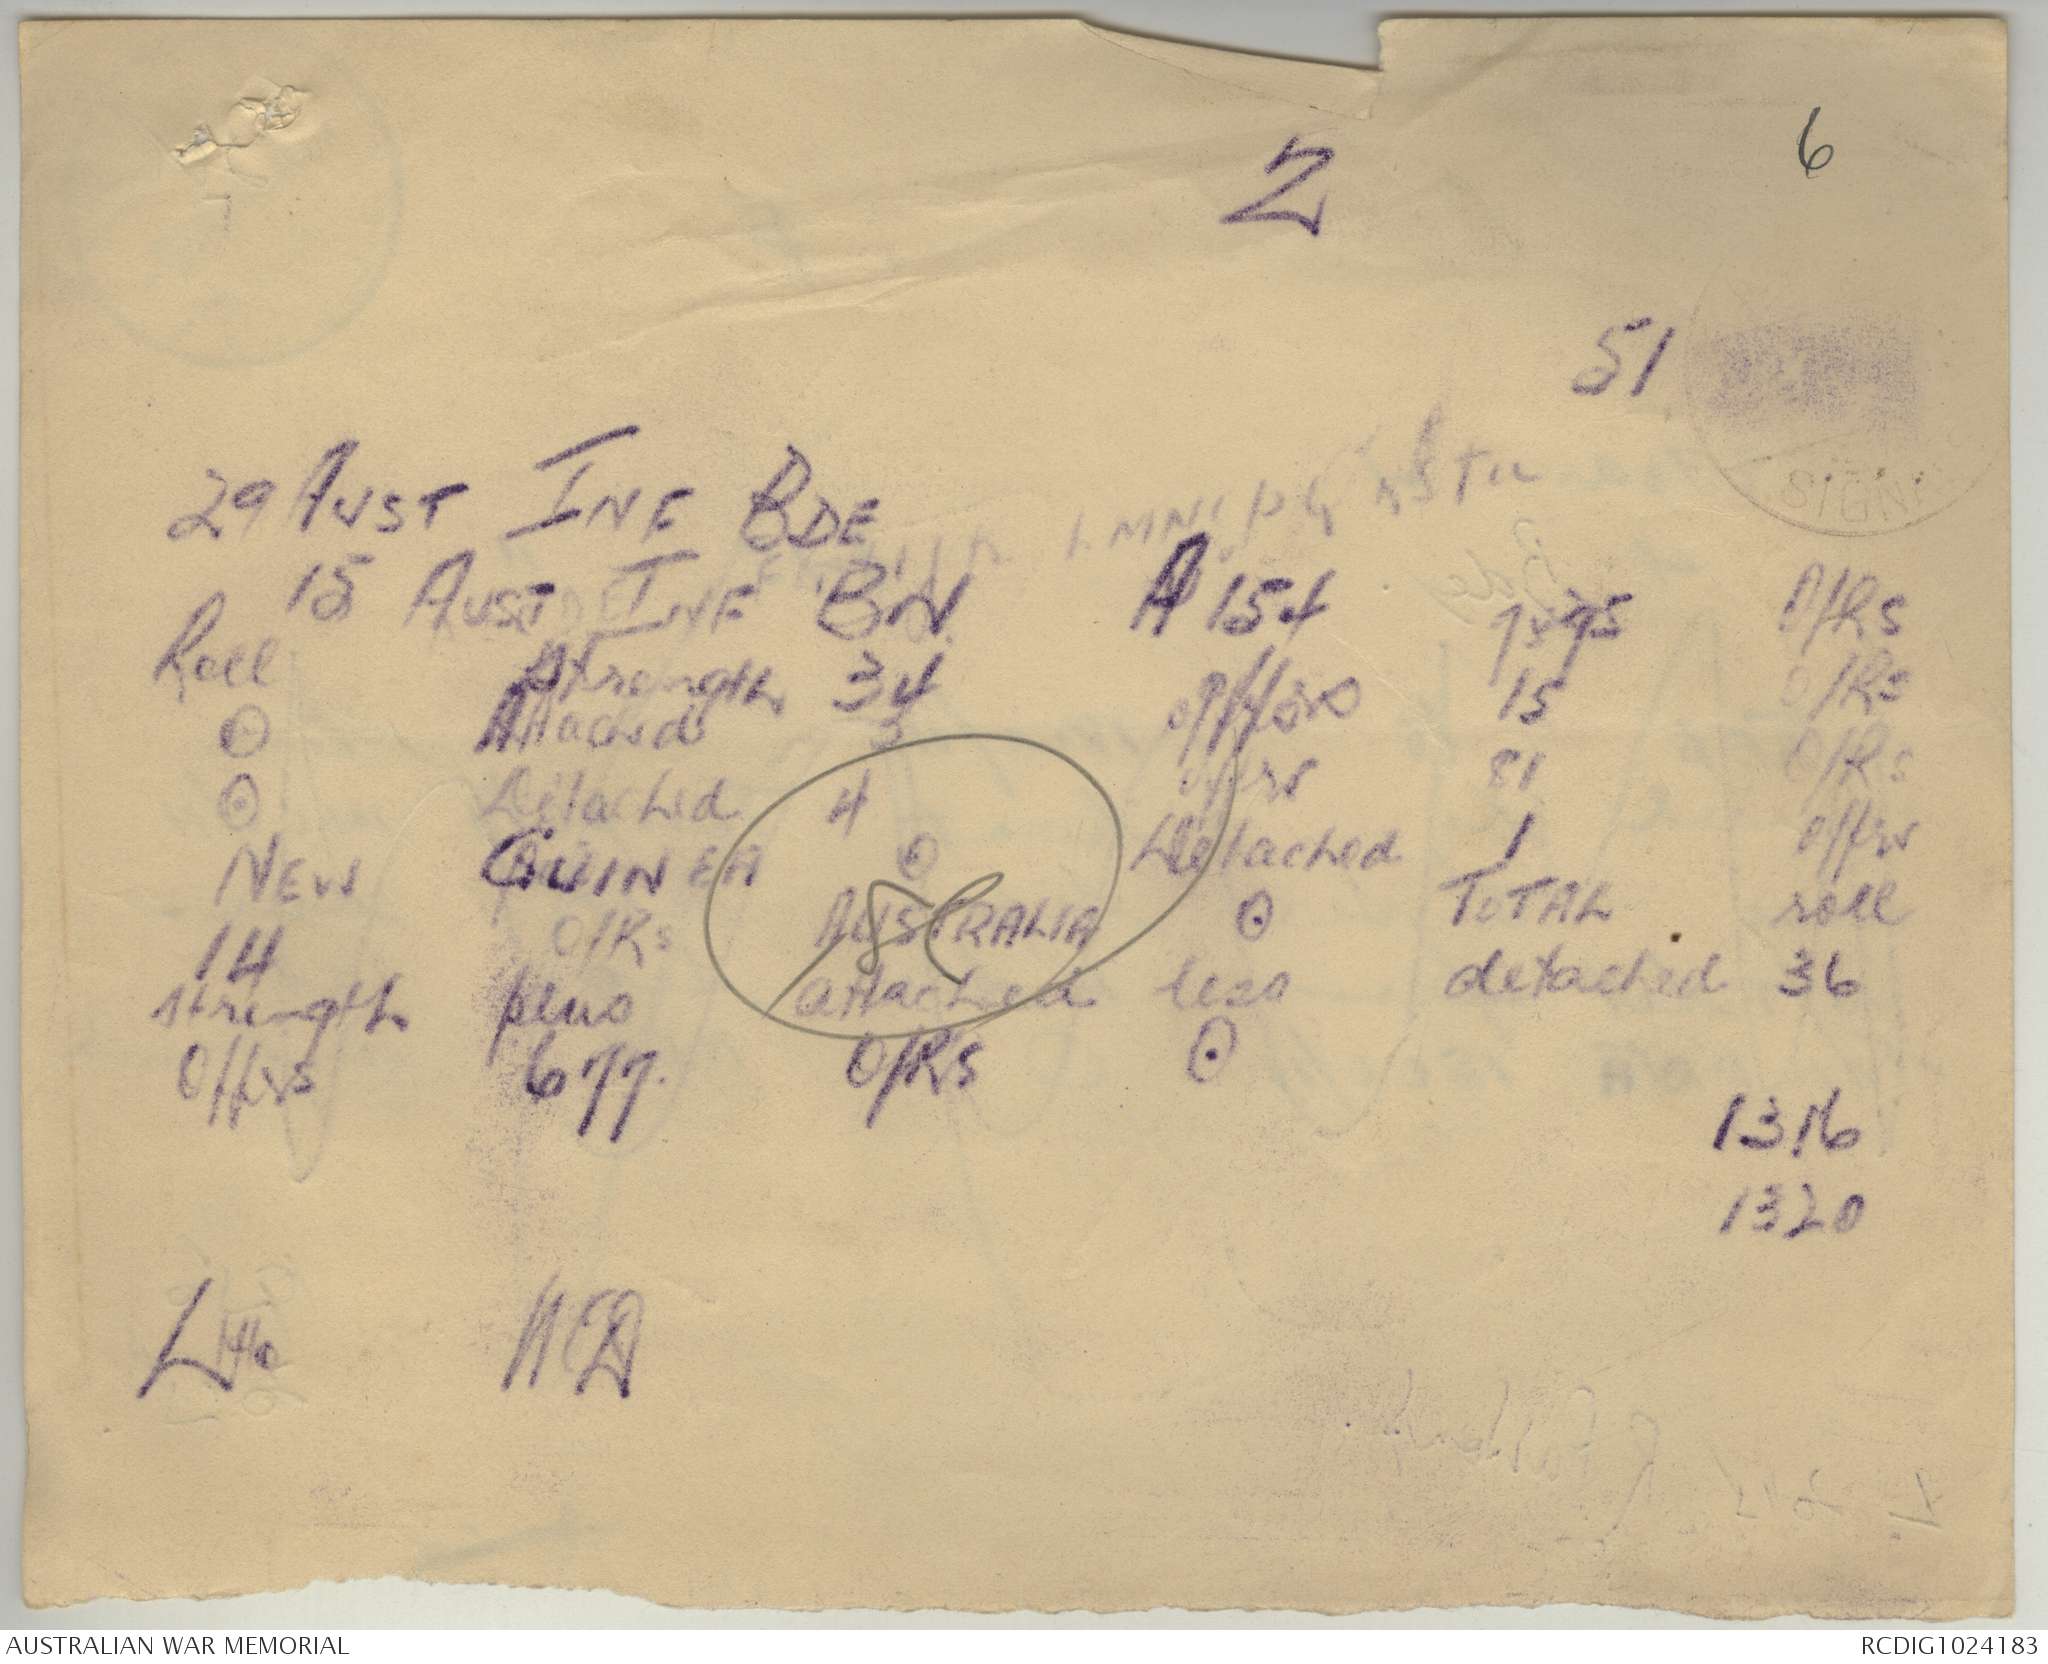 6
2
51
29 AUST INF BDE
15 AUST INF BN. A 154
Roll Strength 34 offrs O/Rs
⊙ Attached 3 offrs 15 O/Rs
⊙ Detached 4 offrs 81 O/Rs
NEW GUINEA ⊙ Detached 1 offrs
14 O/Rs AUSTRALIA ⊙ TOTAL roll
strength plus attached less detached 36
Offrs 677. O/Rs ⊙
1316
1320
SIGN
AUSTRALIAN WAR MEMORIAL
RCDIG1024183